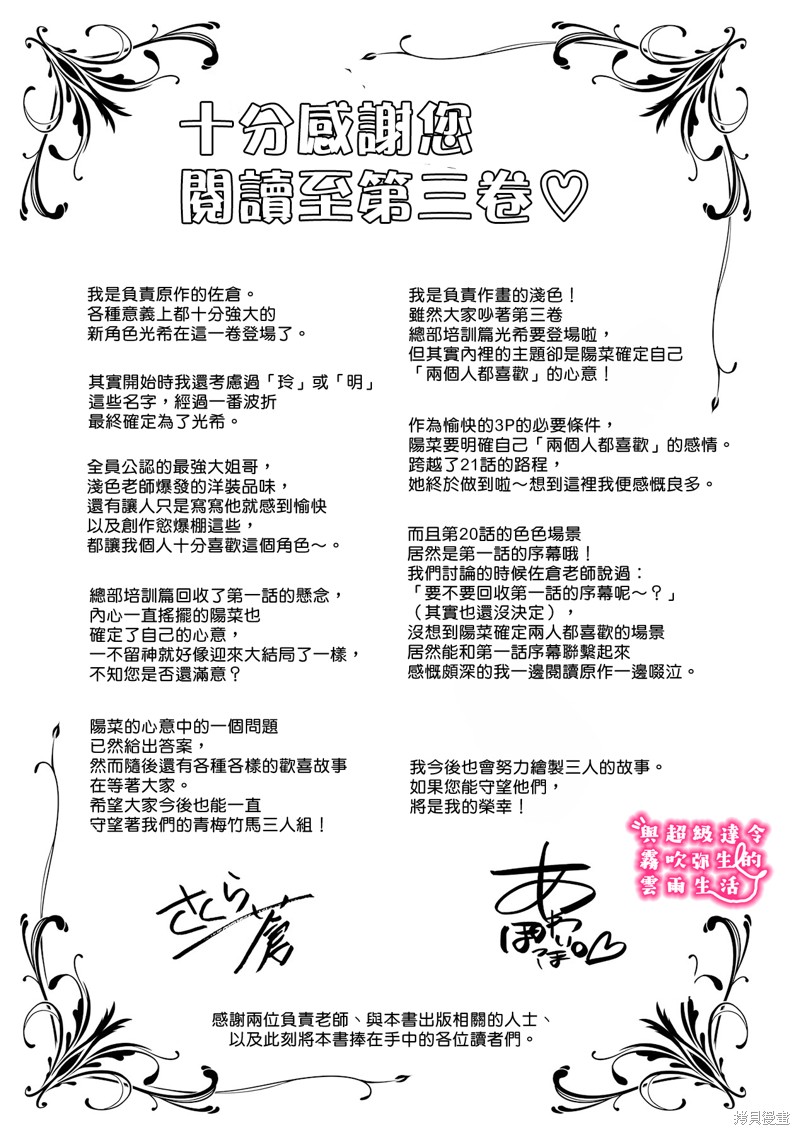 十分感謝您
閱讀至第三卷♡
我是負責原作的佐倉。
各種意義上都十分強大的
新角色光希在這一卷登場了。
其實開始時我還考慮過「玲」或「明」
這些名字，經過一番波折
最終確定為了光希。
全員公認的最強大姐哥，
淺色老師爆發的洋裝品味，
還有讓人只是寫寫他就感到愉快
以及創作慾爆棚這些，
都讓我個人十分喜歡這個角色～。
總部培訓篇回收了第一話的懸念，
內心一直搖擺的陽菜也
確定了自己的心意，
一不留神就好像迎來大結局了一樣，
不知您是否還滿意？
陽菜的心意中的一個問題
已然給出答案，
然而隨後還有各種各樣的歡喜故事
在等著大家。
希望大家今後也能一直
守望著我們的青梅竹馬三人組！
さくら蒼
我是負責作畫的淺色！
雖然大家吵著第三卷
總部培訓篇光希要登場啦，
但其實內裡的主題卻是陽菜確定自己
「兩個人都喜歡」的心意！
作為愉快的3P的必要條件，
陽菜要明確自己「兩個人都喜歡」的感情。
跨越了21話的路程，
她終於做到啦～想到這裡我便感慨良多。
而且第20話的色色場景
居然是第一話的序幕哦！
我們討論的時候佐倉老師說過：
「要不要回收第一話的序幕呢～？」
（其實也還沒決定），
沒想到陽菜確定兩人都喜歡的場景
居然能和第一話序幕聯繫起來
感慨頗深的我一邊閱讀原作一邊啜泣。
我今後也會努力繪製三人的故事。
如果您能守望他們，
將是我的榮幸！
與超級達令
霧吹弥生的
雲雨生活
感謝兩位負責老師、與本書出版相關的人士、
以及此刻將本書捧在手中的各位讀者們。
拷貝漫畫